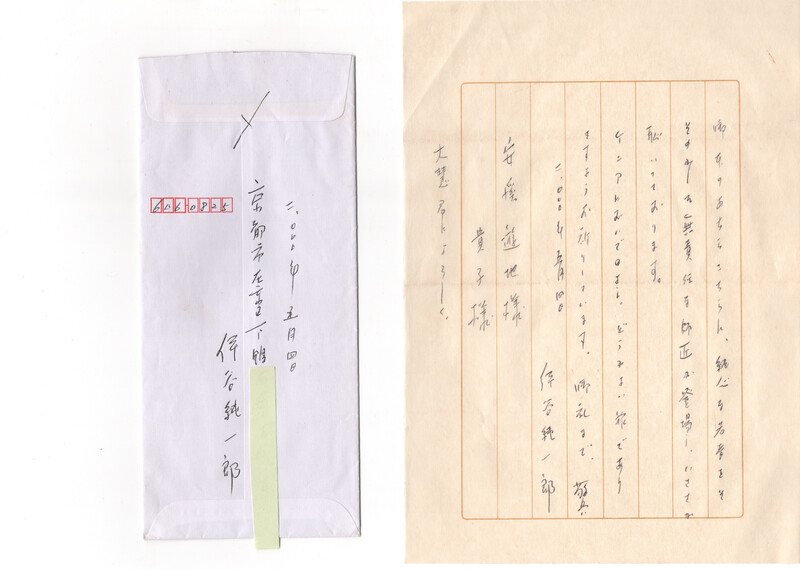 〆
606-0825
二〇〇〇年五月四日
京都市左京区下鴨
伊谷純一郎
御本のあちらこちらに、純心な若者をそ
そのかした無責任な師匠が登場し、いささか
恥いっております。
ケニアにおいでのよし、どうかよい旅であり
ますようお祈りしています。御礼まで。敬具
二〇〇〇年五月四日
伊谷純一郎
安渓遊地様
貴子様
大慧君によろしく。